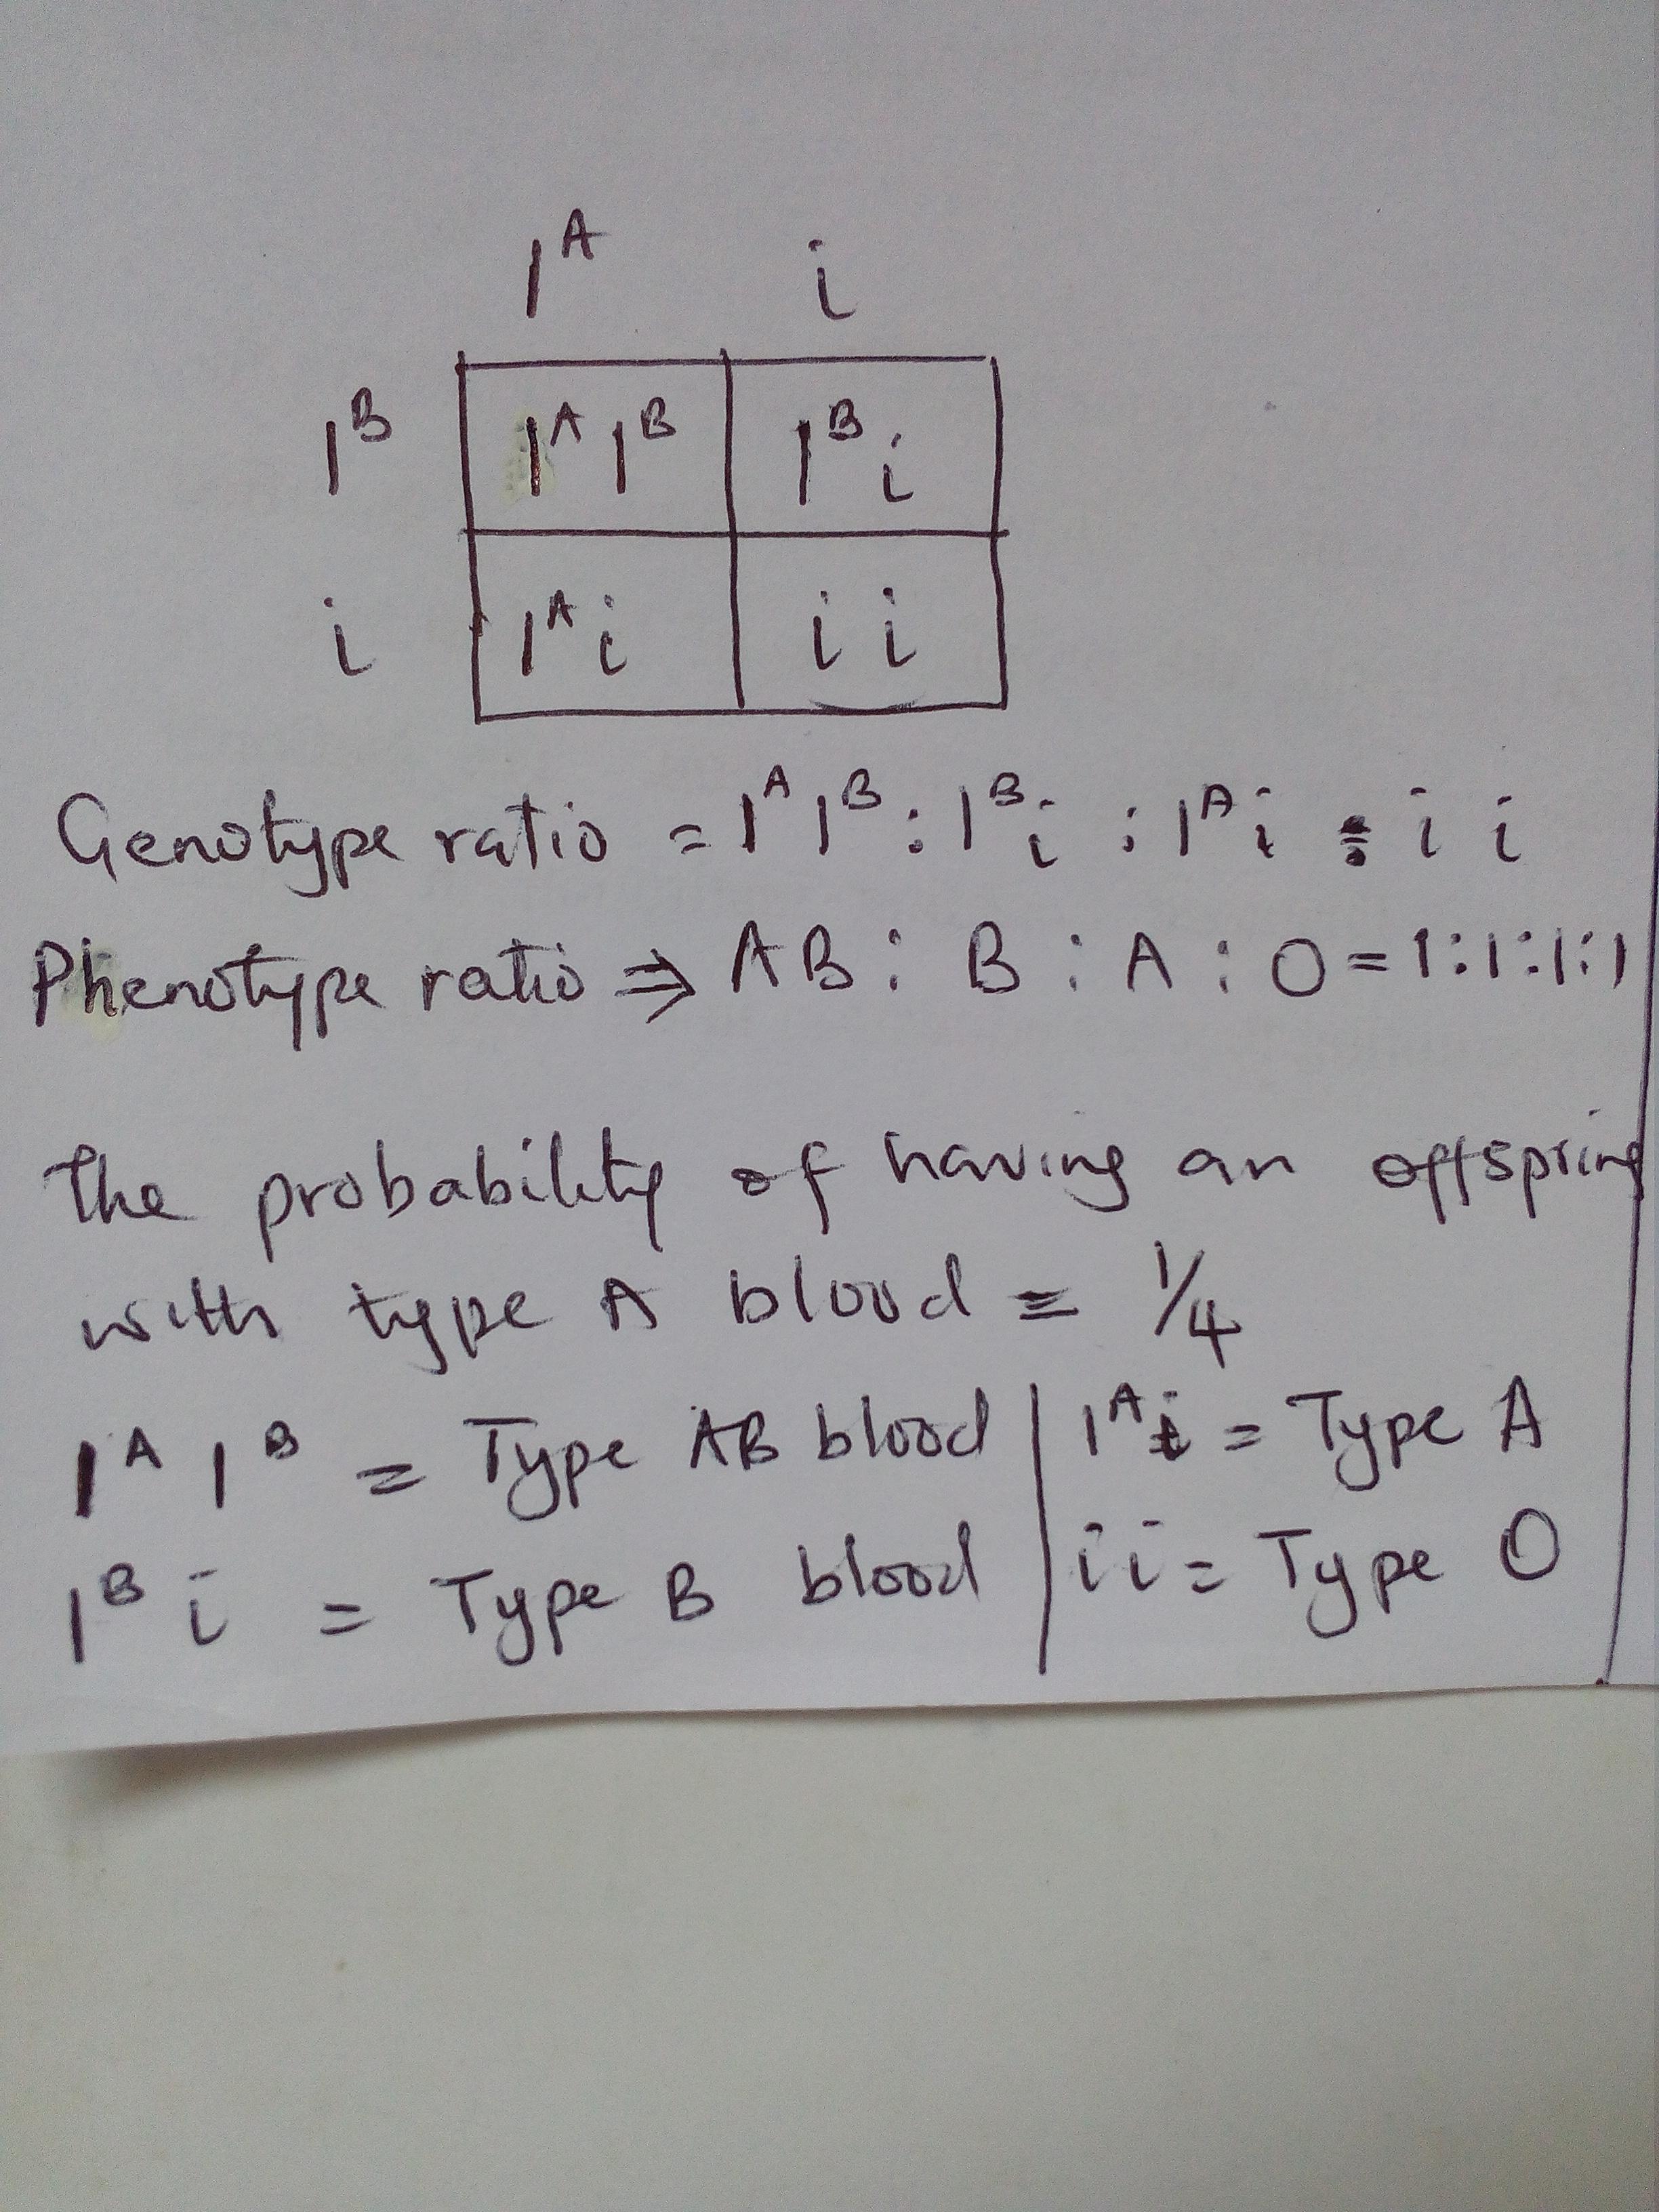 I^A i
I^B I^A I^B I^B i
i I^A i i i
Genotype ratio = I^A I^B : I^B i : I^A i : i i
Phenotype ratio ⇒ AB : B : A : O = 1:1:1:1
The probability of having an offspring
with type A blood = 1/4
I^A I^B = Type AB blood | I^A i = Type A
I^B i = Type B blood | i i = Type O